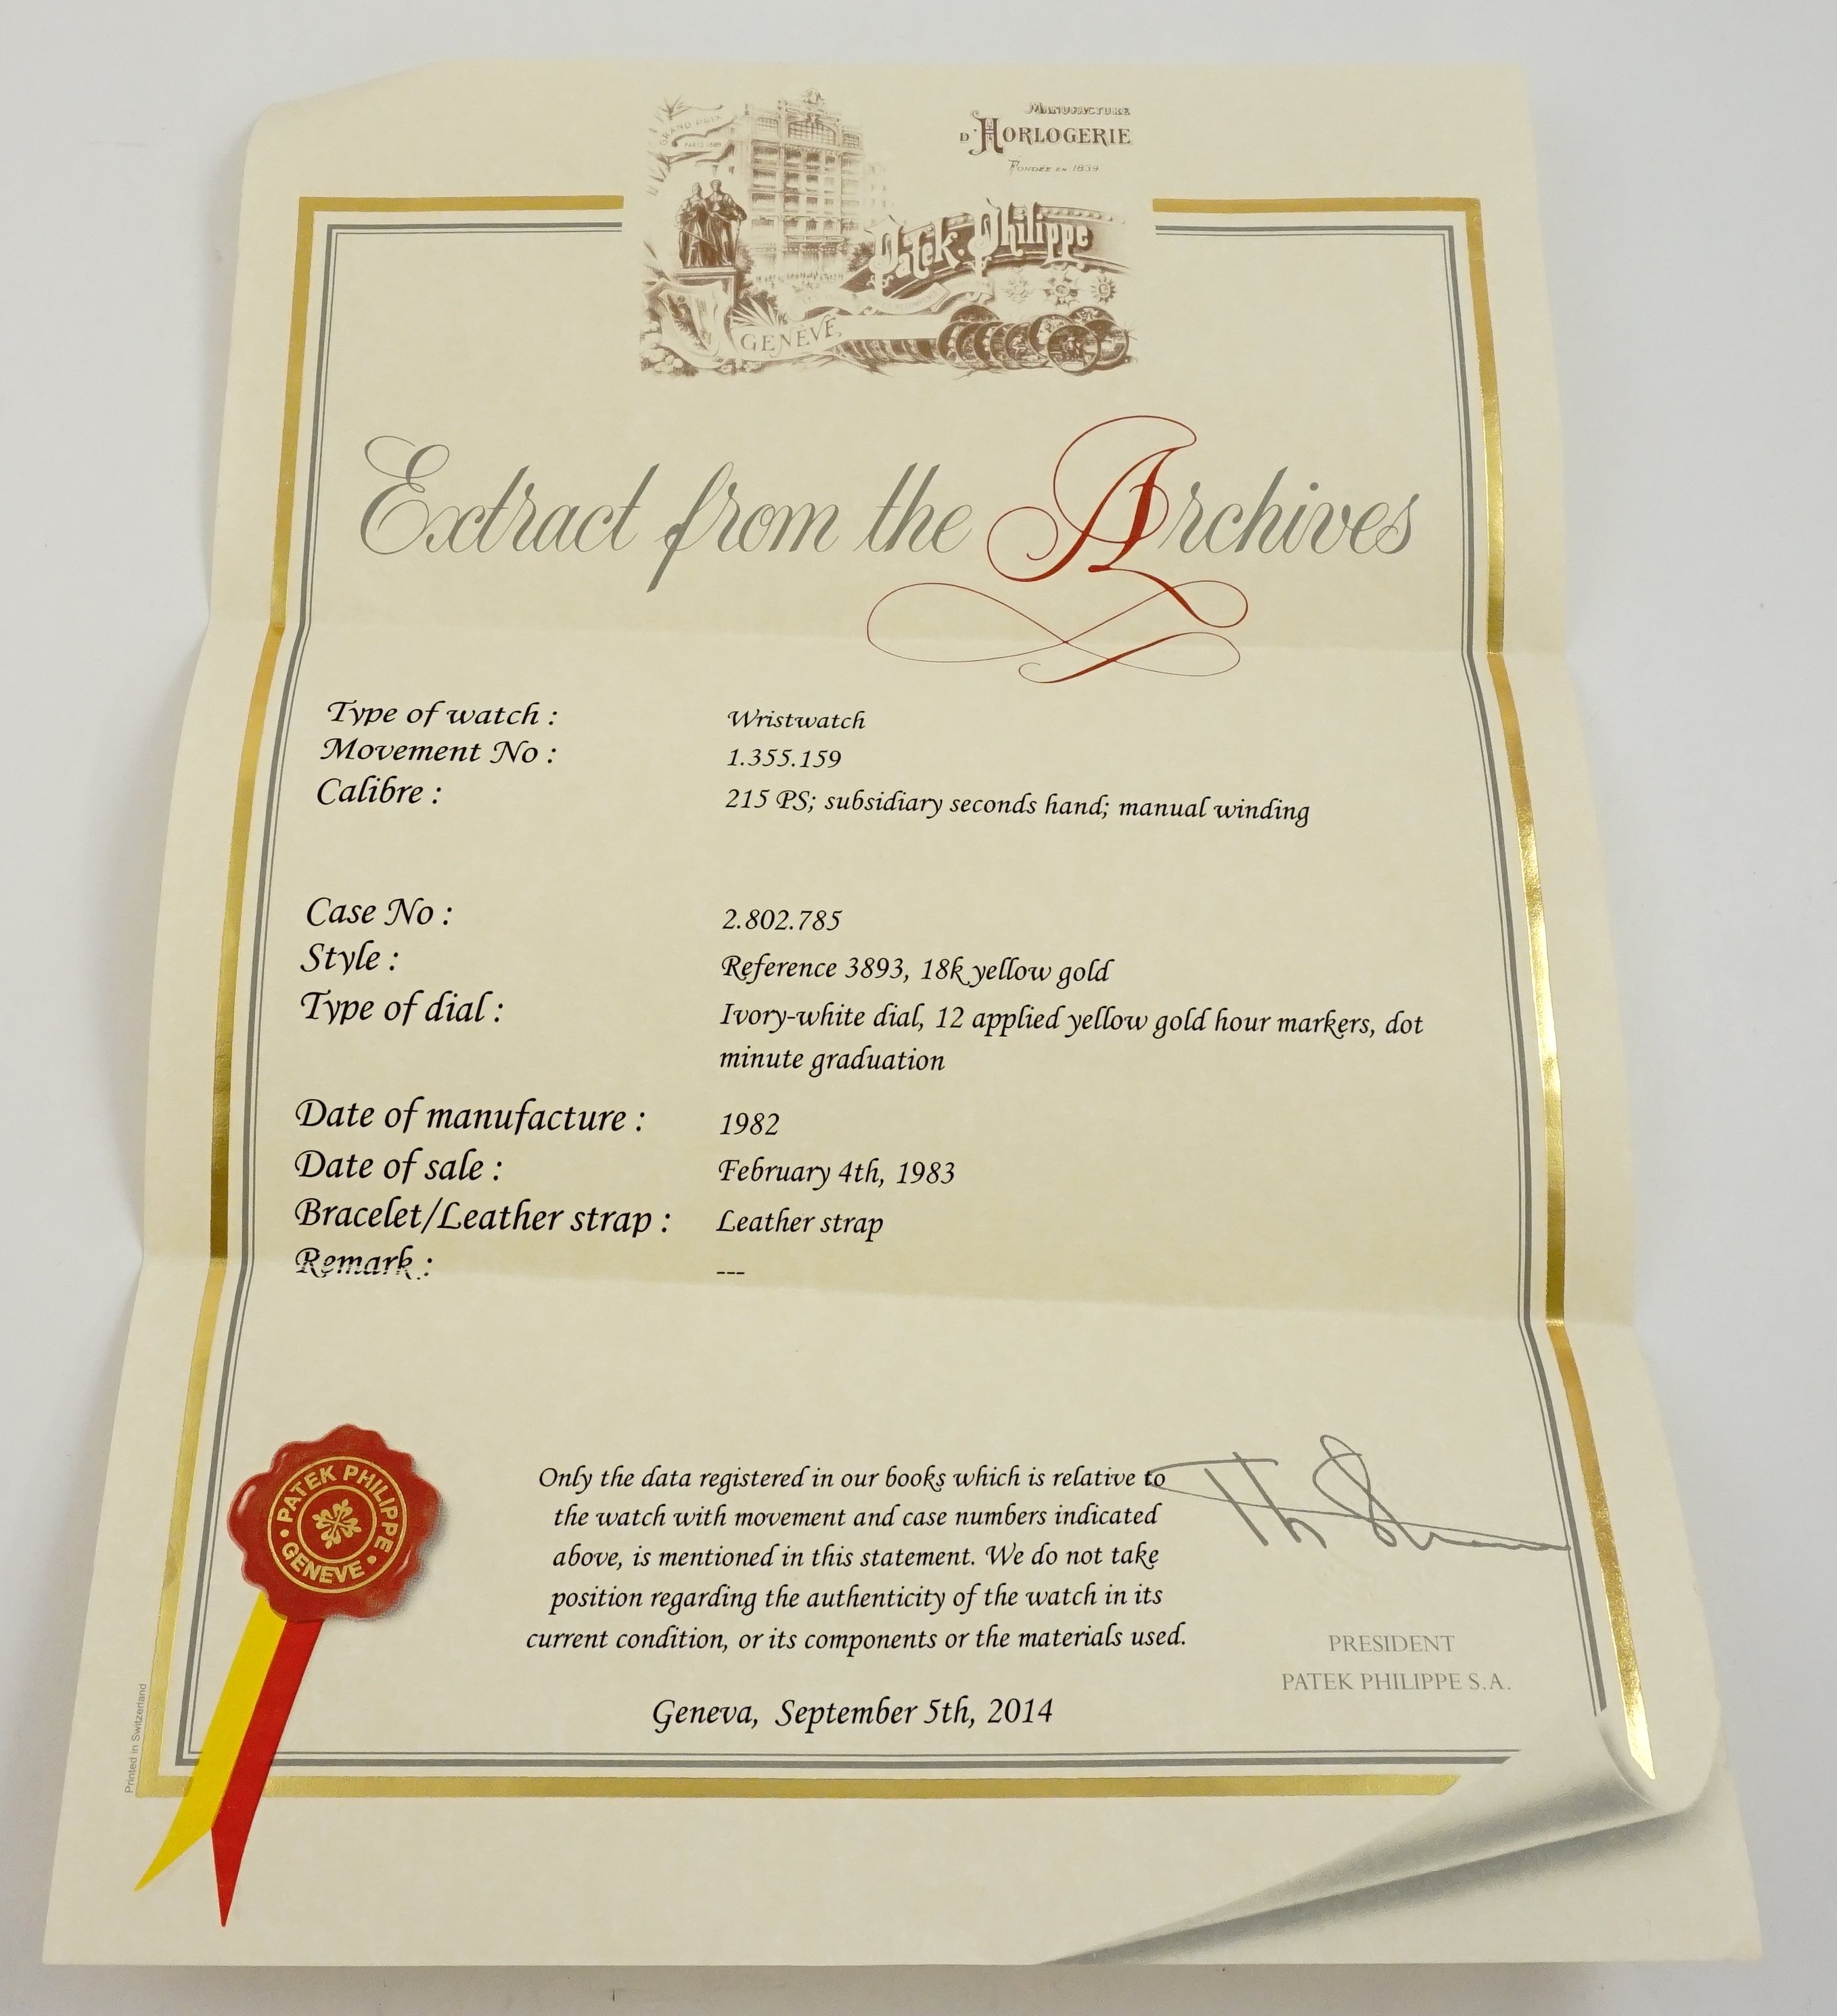 MANUFACTURE
D'HORLOGERIE
FONDÉE EN 1839
GRAND PRIX
PARIS 1889
Patek Philippe
GENÈVE
Extract from the Archives
Type of watch : Wristwatch
Movement No : 1.355.159
Calibre : 215 PS; subsidiary seconds hand; manual winding
Case No : 2.802.785
Style : Reference 3893, 18k yellow gold
Type of dial : Ivory-white dial, 12 applied yellow gold hour markers, dot
minute graduation
Date of manufacture : 1982
Date of sale : February 4th, 1983
Bracelet/Leather strap : Leather strap
Remark : ---
Only the data registered in our books which is relative to
the watch with movement and case numbers indicated
above, is mentioned in this statement. We do not take
position regarding the authenticity of the watch in its
current condition, or its components or the materials used.
Geneva, September 5th, 2014
PRESIDENT
PATEK PHILIPPE S.A.
PATEK PHILIPPE
GENEVE
Printed in Switzerland